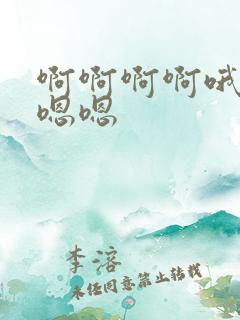 啊啊啊啊哦
嗯嗯
李溶
未经同意禁止转载